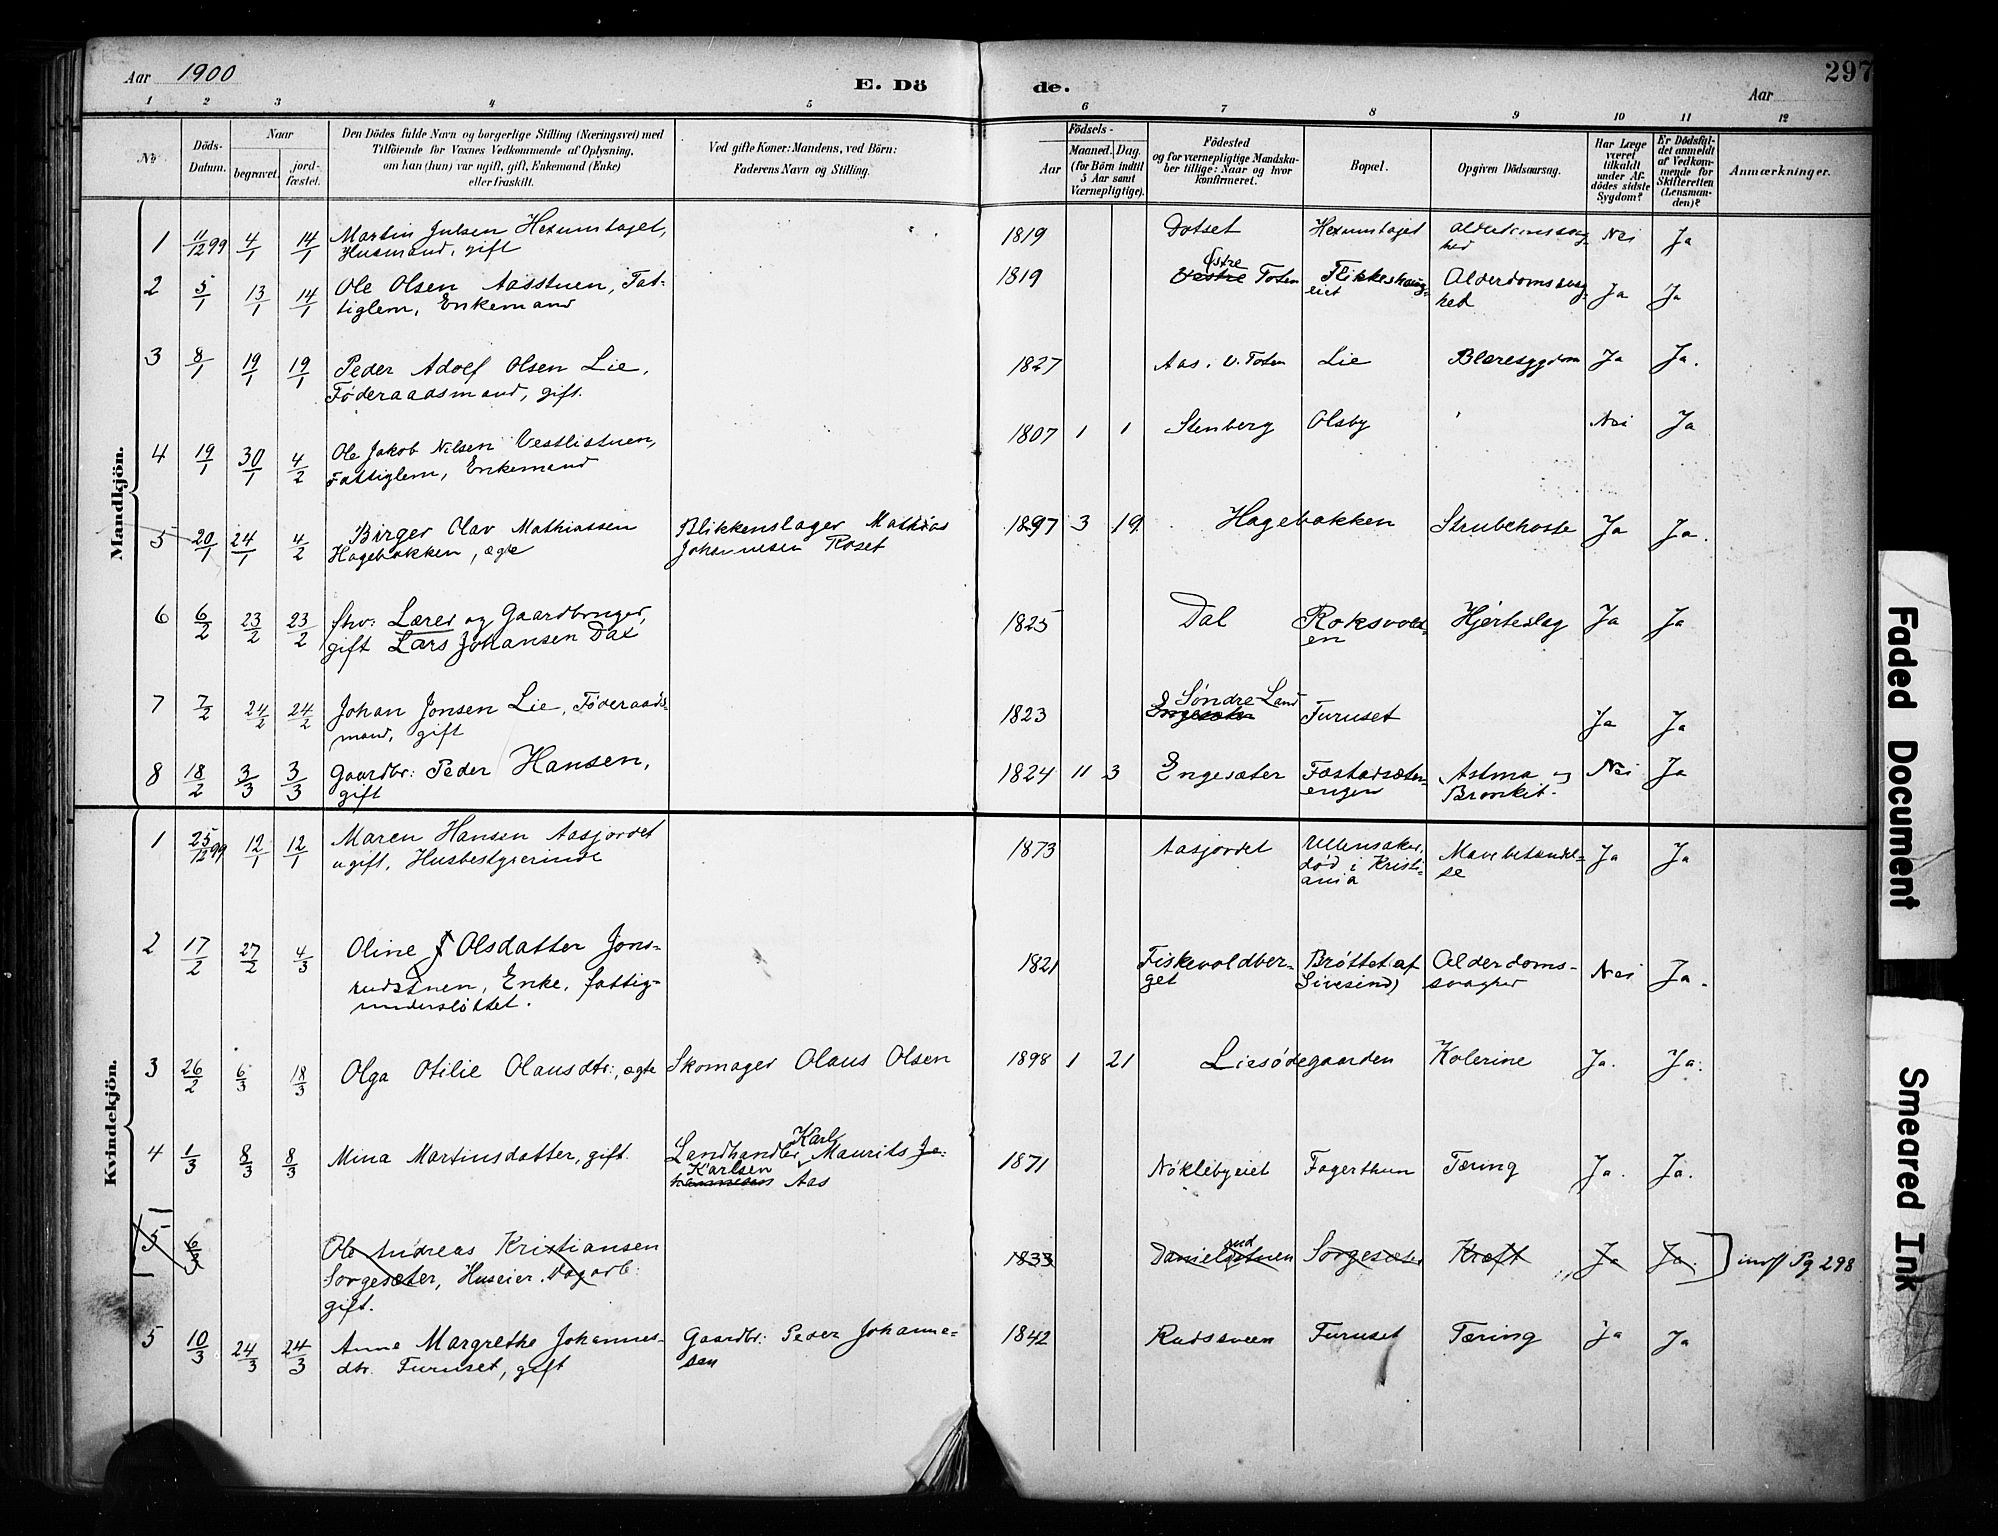 Aar 1900
E. Dö
de.
297
Aar
1 2 3 4 5 6 7 8 9 10 11 12
No
Döds-
Datum.
Naar
begravet.
jord-
fæstet.
Den Dödes fulde Navn og borgerlige Stilling (Næringsvei) med
Tilföiende for Voxnes Vedkommende af Oplysning,
om han (hun) var ugift, gift, Enkemand (Enke)
eller fraskilt.
Ved gifte Koner: Mandens, ved Börn:
Faderens Navn og Stilling.
Födsels-
Aar
Maaned. Dag.
(for Börn indtil
5 Aar samt
Værnepligtige).
Födested
og for værnepligtige Mandska-
ber tillige: Naar og hvor
konfirmeret.
Bopæl.
Opgiven Dödsaarsag.
Har Læge
været
tilkaldt
under Af-
dödes sidste
Sygdom?
Er Dödsfal-
det anmeldt
af Vedkom-
mende for
Skifteretten
(Lensman-
den)?
Anmærkninger.
Mandkjön.
1 11/12 99 4/1 14/1 Martin Julsen Hexumhaget,
Husmand, gift
1819 Dotset Hexumhaget Alderdomssvag-
hed Nei Ja
2 5/1 13/1 14/1 Ole Olsen Aasstuen, Fat-
tiglem, Enkemand
1819 Østre
Vestre Toten Flikkeshaug-
eiet Alderdomssvag-
hed Ja Ja
3 8/1 19/1 19/1 Peder Adolf Olsen Lie,
Føderaadsmand, gift.
1827 Aas, V. Toten Lie Blæresygdom Ja Ja.
4 19/1 30/1 4/2 Ole Jakob Nilsen Vestlistuen,
Fattiglem, Enkemand
1807 1 1 Stenberg Olsby Nei Ja
5 20/1 24/1 4/2 Birger Olav Mathiassen
Hagebakken, ægte
Blikkenslager Mathias
Johannesen Roset
1897 3 19 Hagebakken Strubehoste Ja Ja.
6 6/2 23/2 23/2 fhv: Lærer og Gaardbruger,
gift Lars Johansen Dal
1825 Dal Roksvold-
en Hjerteslag Ja Ja
7 7/2 24/2 24/2 Johan Jonsen Lie, Føderaads-
mand, gift
1823 Søndre Land
Engesæter Furuset Ja Ja
8 18/2 3/3 3/3 Gaardbr: Peder Hansen,
gift
1824 11 3 Engesæter Fæstadsæter-
engen Astma og
Bronkit. Nei Ja
Kvindekjön.
1 25/12 99 12/1 12/1 Maren Hansen Aasjordet
ugift, Husbestyrerinde
1873 Aasjordet Ullensaker,
død i Kristi-
ania Mavebetændel-
se Ja Ja
2 17/2 27/2 4/3 Oline J Olsdatter Jons-
rudstuen, Enke, fattig-
understøttet.
1821 Fiskevoldber-
get Brøttet af
Sivesind) Alderdoms-
svaghed Nei Ja.
3 26/2 6/3 18/3 Olga Otilie Olausdtr:, ægte Skomager Olaus Olsen
1898 1 21 Liesødegaarden Kolerine Ja. Ja:
4 1/3 8/3 8/3 Mina Martinsdatter, gift. Landhandler Karl Maurits Jo-
Karlsen
hannesen Aas
1871 Nøklebyeiet Fagerthun Tæring Ja. Ja.
5 6/3 Ole Andreas Kristiansen
Sorgesæter, Huseier. Dagarb:
gift.
1833 Danielsstuen rud Sorgesæter Kræft Ja Ja. indf Pg 298
5 10/3 24/3 24/3 Anne Margrethe Johannes-
dtr. Furuset, gift
Gaardbr: Peder Johanne-
sen
1842 Rudssveen Furuset Tæring Ja Ja
Faded Document
Smeared Ink